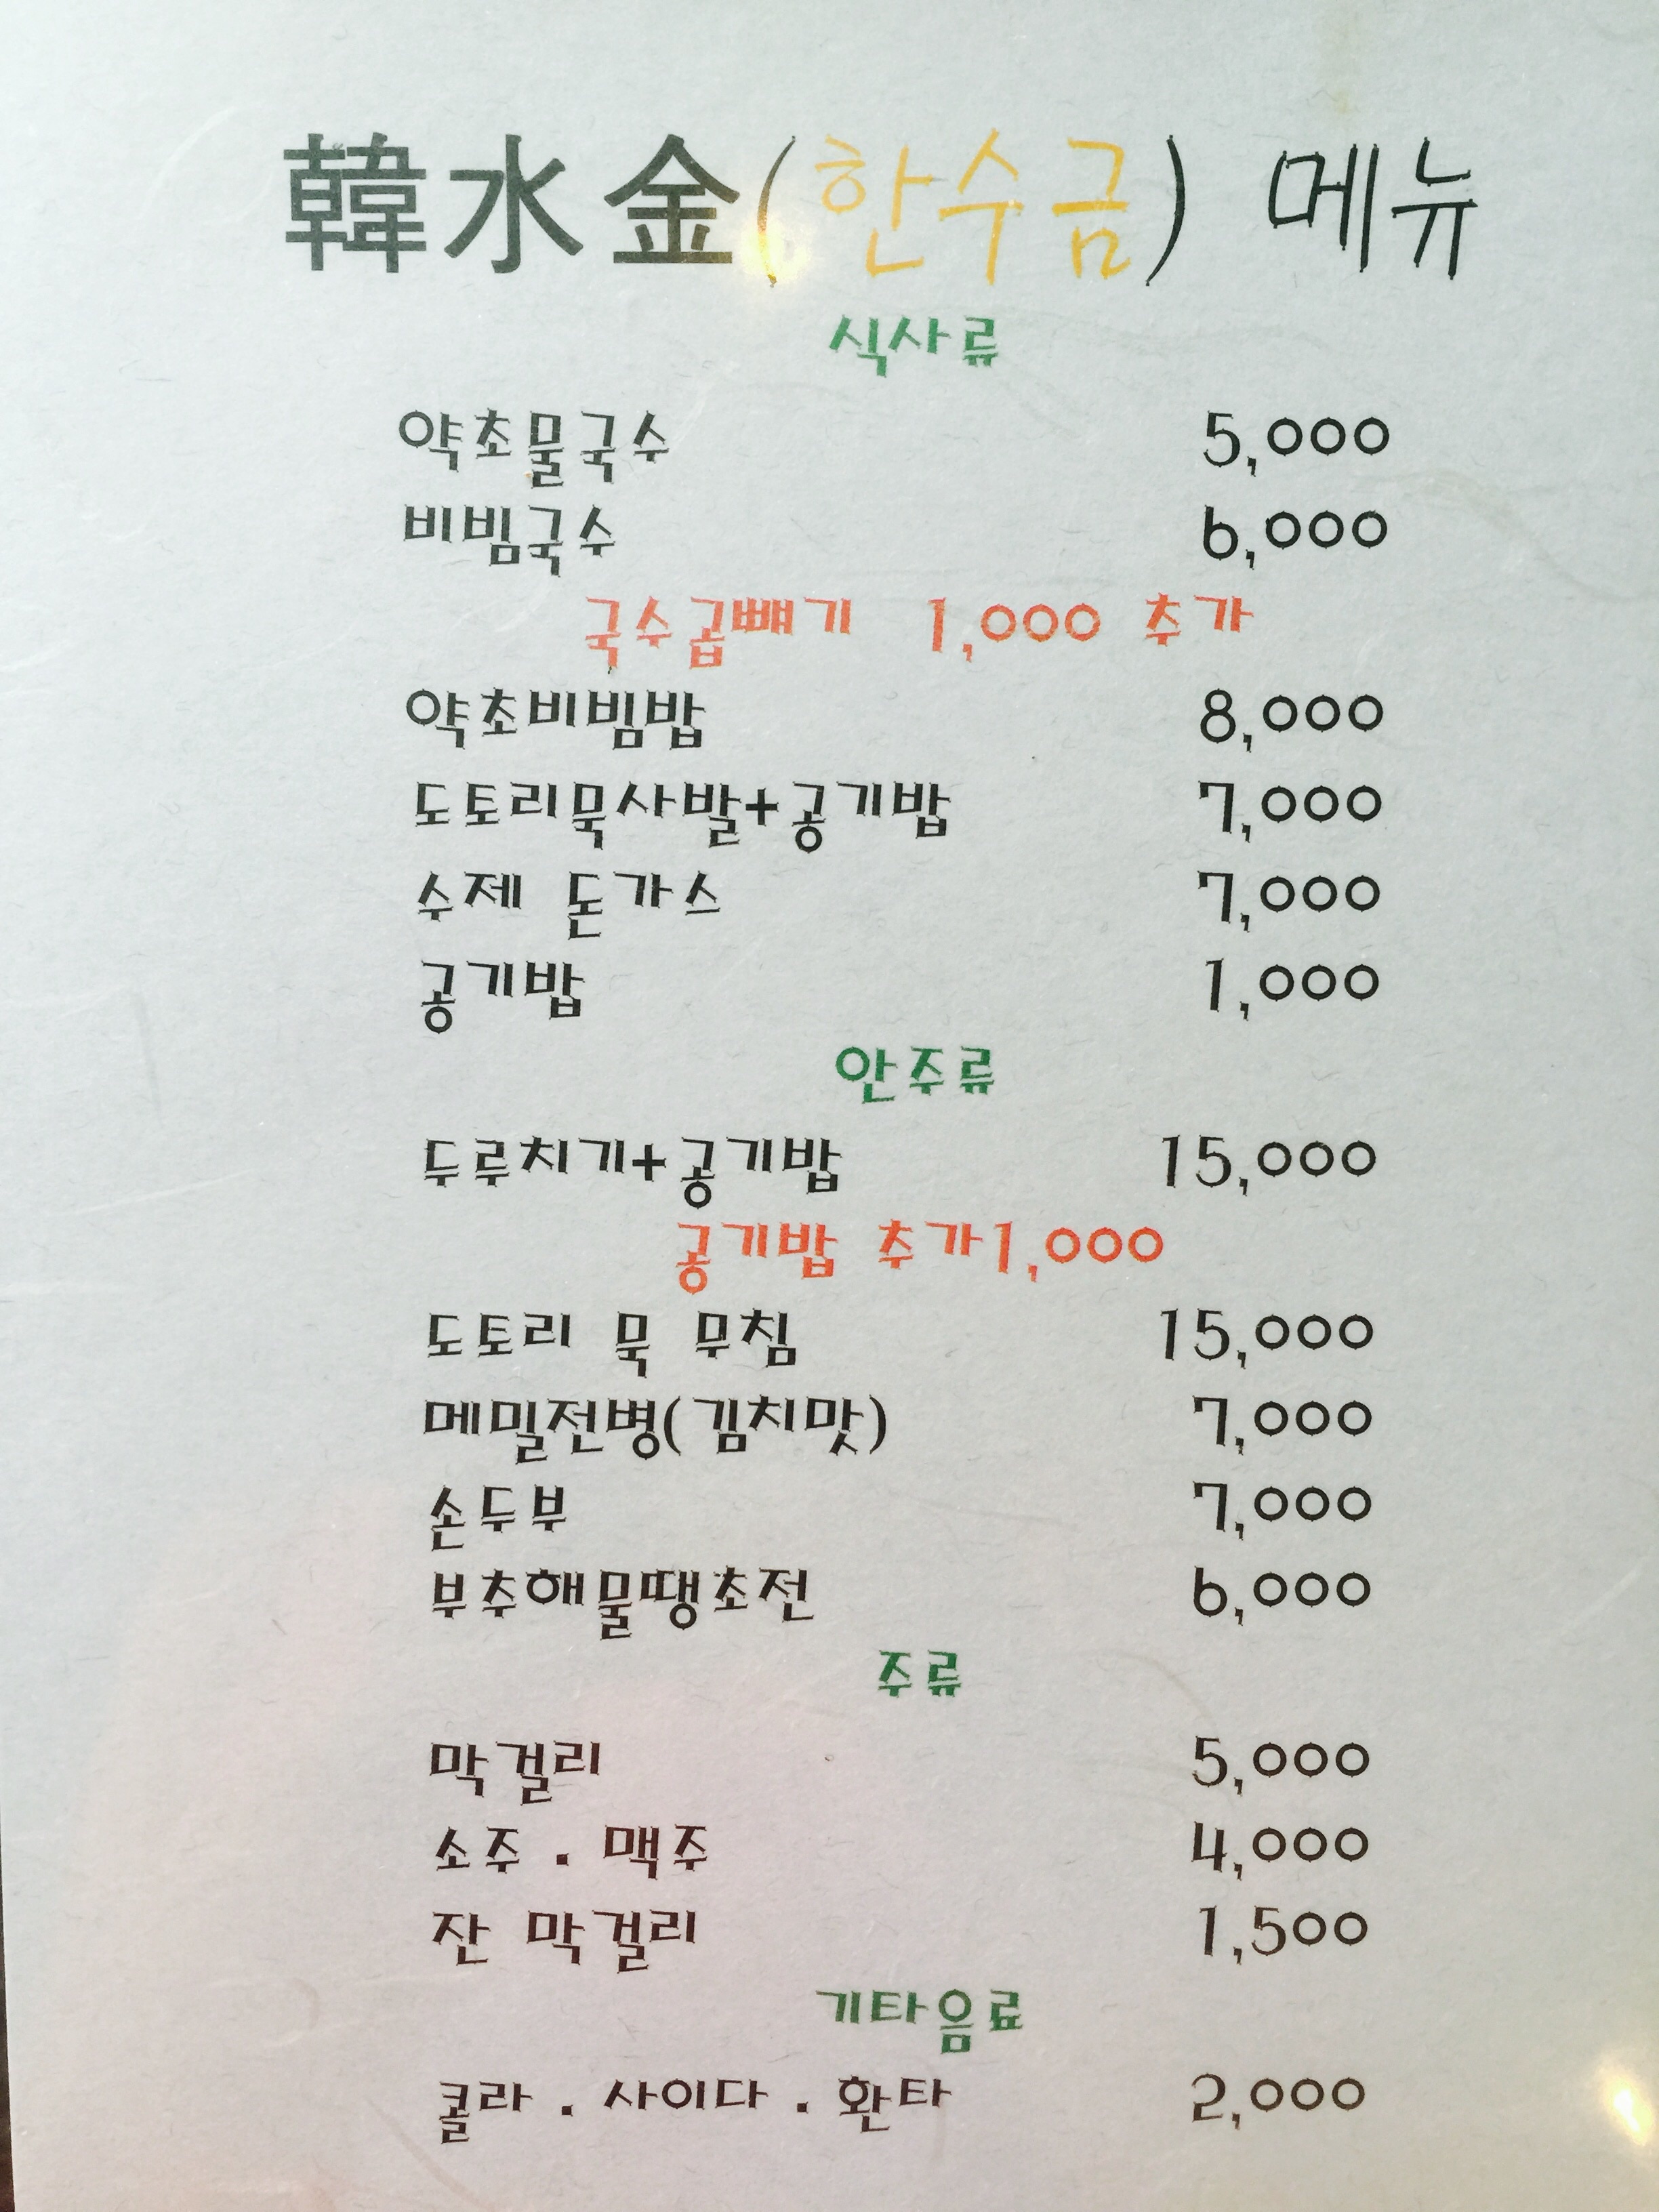 韓水金(한수금) 메뉴
식사류
약초물국수 5,000
비빔국수 6,000
국수곱빼기 1,000 추가
약초비빔밥 8,000
도토리묵사발+공기밥 7,000
수제 돈가스 7,000
공기밥 1,000
안주류
두루치기+공기밥 15,000
공기밥 추가1,000
도토리 묵 무침 15,000
메밀전병(김치맛) 7,000
손두부 7,000
부추해물땡초전 6,000
주류
막걸리 5,000
소주 . 맥주 4,000
잔 막걸리 1,500
기타음료
콜라 . 사이다 . 환타 2,000